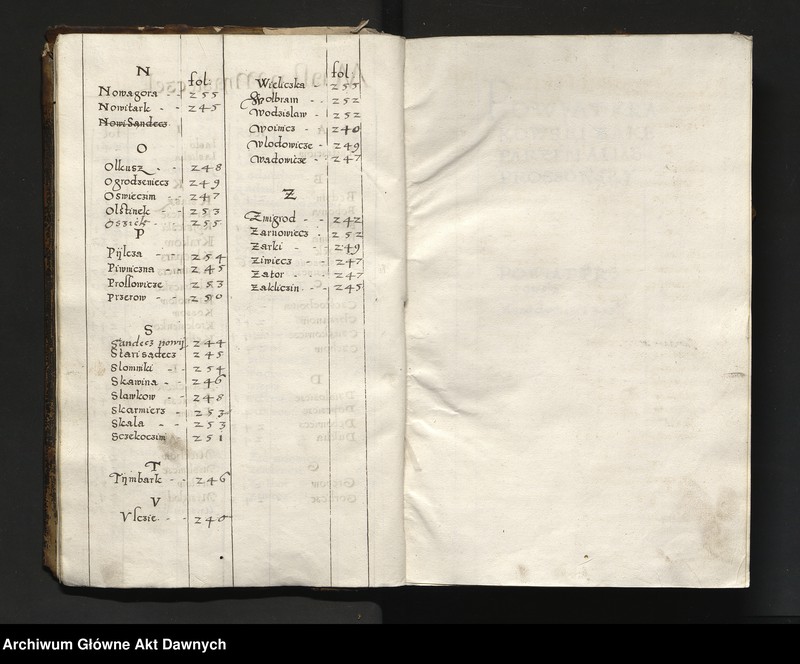 N
fol
Nowagora - - 255
Nowitark - - 245
Nowi Sandecz
O
Olkusz - - 248
Ogrodzeniecz 249
Oswieczim - - 247
Olstinek - - 253
P
Pijlcza - 254
Piwniczna - 245
Prossowicze 253
Przerow - - 250
S
Sandecz nowij 244
Stari sądecz 245
Slomniki - - 254
Skawina - - 246
Slawkow - - 248
Skarmierz - 253
Skala - - 253
Sczekoczini 251
T
Tijmbark - - 246
V
Vsczie - - 246
fol
Wieliczka - 255
Wolbram - - 252
Wodzislaw - 252
Woinicz - - 246
Wlodowicze - 249
Wadowicze - 247
Z
Zmigrod - - 242
Zarnowiecz - 252
Zarki - - - 249
Ziwiecz - - 247
Zator - - - 247
Zakliczin - - 245
Archiwum Główne Akt Dawnych